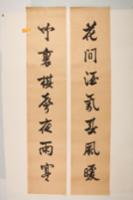 花間酒氣春風暖
竹裏棋聲夜雨寒